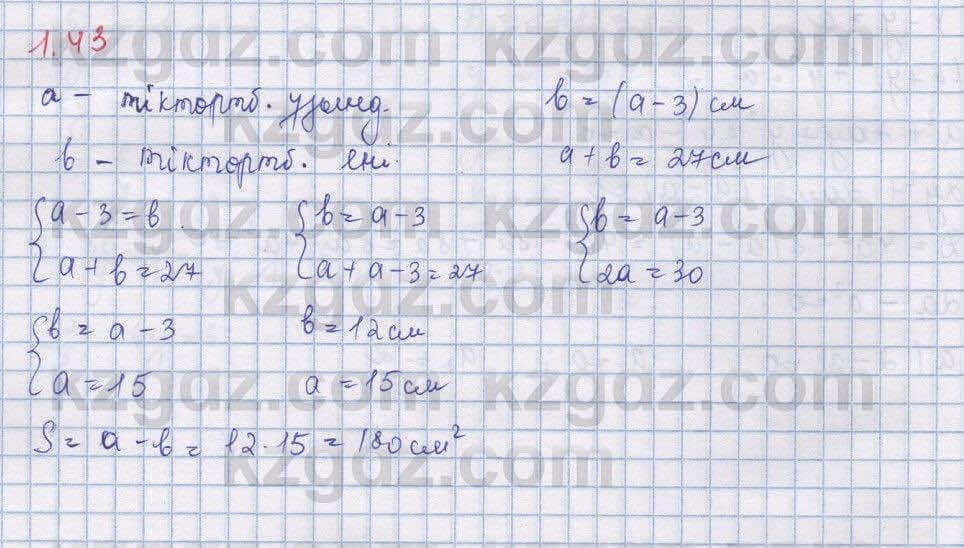 1.43
a – тіктөртб. ұзынд. b = (a – 3) см
b – тіктөртб. ені. a + b = 27 см
{ a – 3 = b { b = a – 3 { b = a – 3
{ a + b = 27 { a + a – 3 = 27 { 2a = 30
{ b = a – 3 b = 12 см
{ a = 15 a = 15 см
S = a – b = 12 · 15 = 180 см²
kzgdz.com kzgdz.com
kzgdz.com
kzgdz.com kzgdz.com
kzgdz.com
kzgdz.com kzgdz.com
kzgdz.com